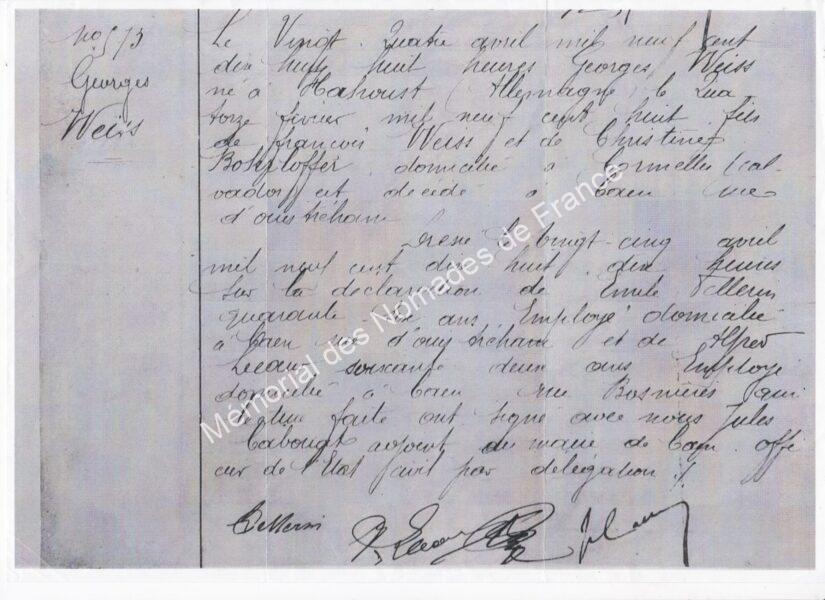 No 573
Georges
Weiss
Le Vingt Quatre avril mil neuf cent
dix huit huit heures Georges Weiss
né à Hanoust (Allemagne) le Qua
torze février mil neuf cent huit fils
de françois Weiss et de Christine
domicilié à Cormelles (cal
vados) est décédé à Caen rue
d'ouistreham
Dressé le vingt cinq avril
mil neuf cent dix huit dix heures
sur la déclaration de Emile Pellerin
quarante six ans, Employé domicilié
à Caen rue d'ouistreham et de Alfred
soixante deux ans Employé
domicilié à Caen rue Bosnières qui
lecture faite ont signé avec nous Jules
Cabouat adjoint du maire de Caen offi
cier de l'Etat civil par délégation ./.
Mémorial des Nomades de France